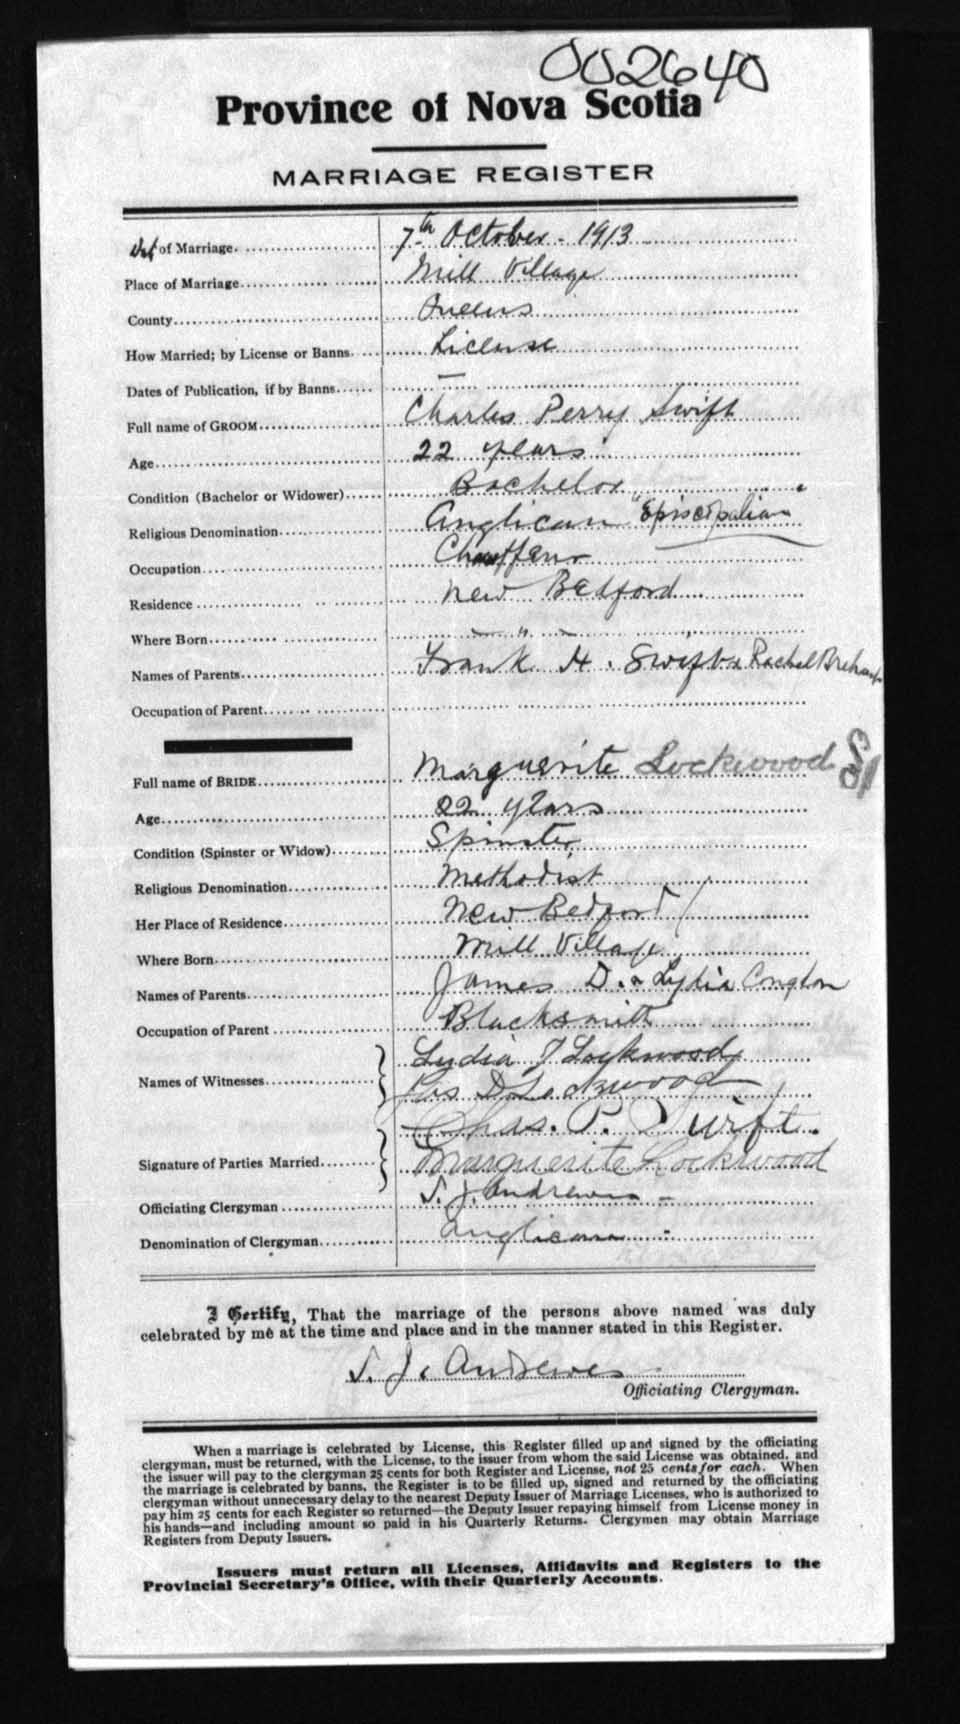 002640
Province of Nova Scotia
MARRIAGE REGISTER
of Marriage. 7th October - 1913
Place of Marriage Mill Village
County Queens
How Married; by License or Banns License
Dates of Publication, if by Banns —
Full name of GROOM Charles Perry Swift
Age 22 years
Condition (Bachelor or Widower) Bachelor
Religious Denomination Anglican "Episcopalian
Occupation Chauffeur
Residence New Bedford
Where Born — " —
Names of Parents Frank H. Swift & Rachel
Occupation of Parent
Full name of BRIDE Marguerite Lockwood
Age 22 years
Condition (Spinster or Widow) Spinster
Religious Denomination Methodist
Her Place of Residence New Bedford
Where Born Mill Village
Names of Parents James D. & Lydia Congdon
Occupation of Parent Blacksmith
Names of Witnesses Lydia J Lockwood
Jas D Lockwood
Chas. P. Swift.
Signature of Parties Married Marguerite Lockwood
Officiating Clergyman S. J. Andrewes -
Denomination of Clergyman Anglican -
I Certify, That the marriage of the persons above named was duly
celebrated by me at the time and place and in the manner stated in this Register.
S. J. Andrewes
Officiating Clergyman.
When a marriage is celebrated by License, this Register filled up and signed by the officiating
clergyman, must be returned, with the License, to the issuer from whom the said License was obtained, and
the issuer will pay to the clergyman 25 cents for both Register and License, not 25 cents for each. When
the marriage is celebrated by banns, the Register is to be filled up, signed and returned by the officiating
clergyman without unnecessary delay to the nearest Deputy Issuer of Marriage Licenses, who is authorized to
pay him 25 cents for each Register so returned—the Deputy Issuer repaying himself from License money in
his hands—and including amount so paid in his Quarterly Returns. Clergymen may obtain Marriage
Registers from Deputy Issuers.
Issuers must return all Licenses, Affidavits and Registers to the
Provincial Secretary's Office, with their Quarterly Accounts.